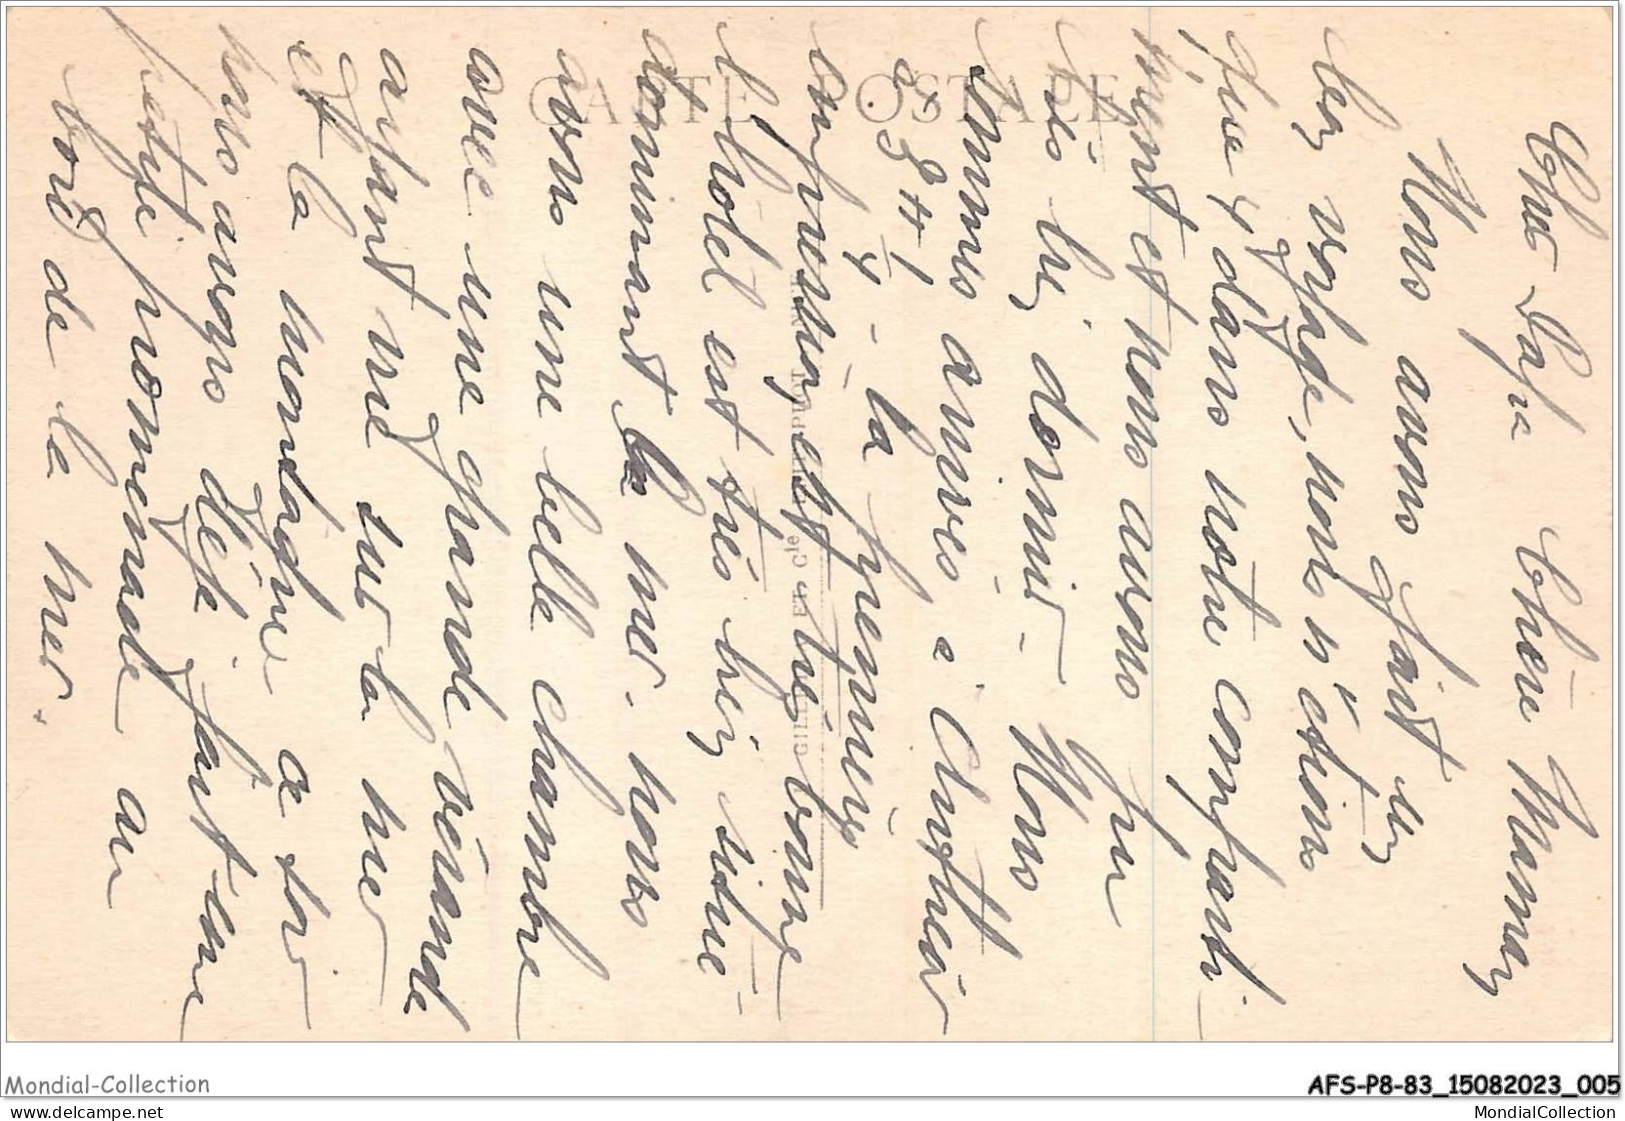 Cher Papa Chère Maman
Nous avons fait un
bon voyage, nous n'étions
que 4 dans notre comparti-
ment et nous avons pu
très bien dormir - Nous
sommes arrivés à Anthéor
à 8 H 1/4 - la première
impression est très bonne
l'hôtel est très bien situé
dominant la mer. nous
avons une belle chambre
avec une grande véranda
ayant vue sur la mer
et la montagne à
nous avons déjà fait une
petite promenade au
bord de la mer.
CARTE POSTALE
GILETTA ET Cie
Mondial-Collection
AFS-P8-83_15082023_005
www.delcampe.net
MondialCollection